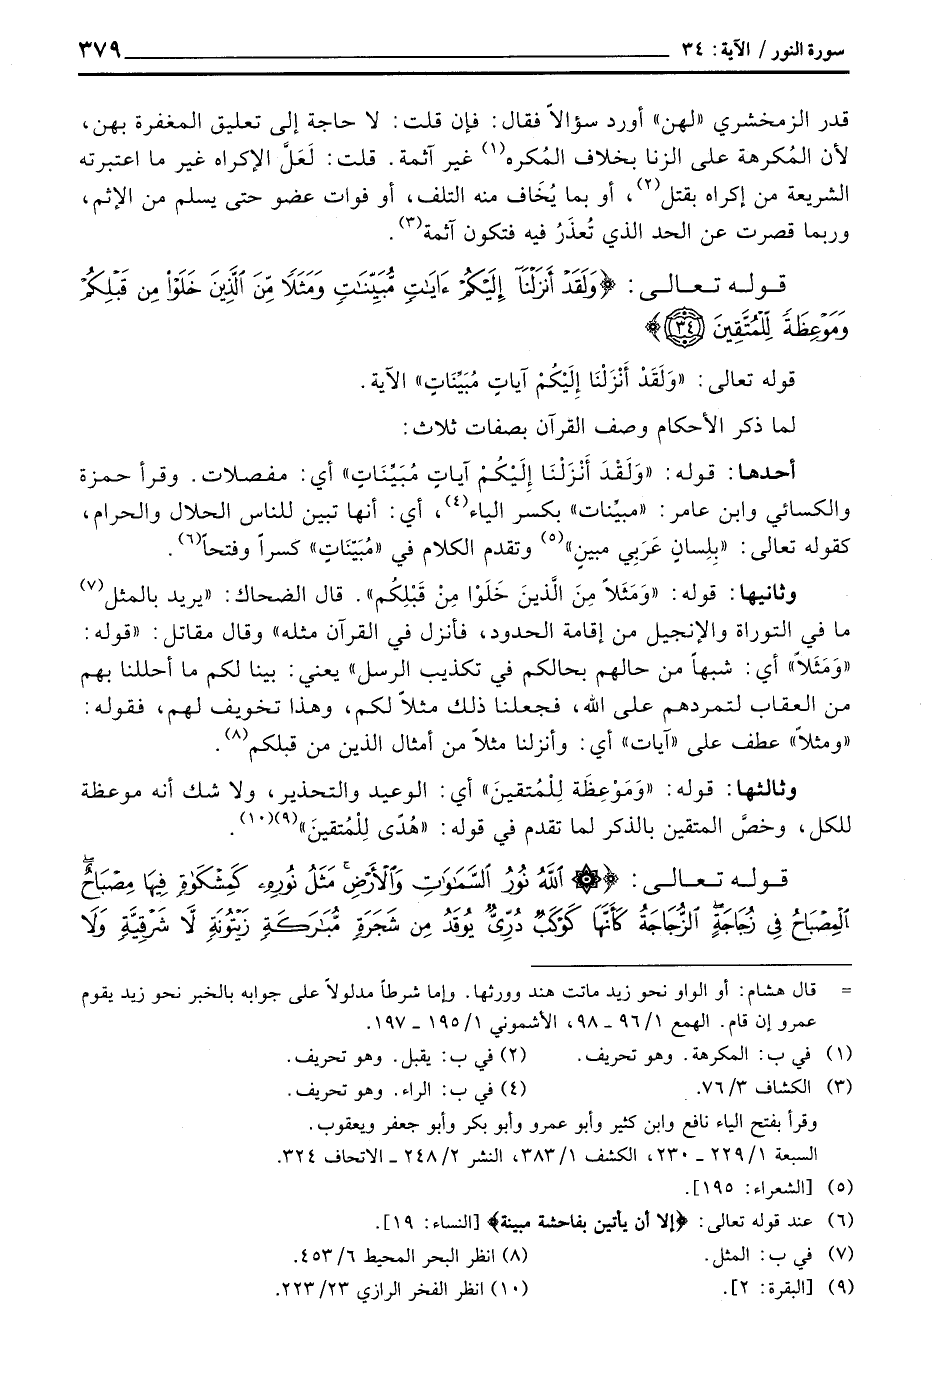 سورة النور / الآية: ٣٤ ٣٧٩
قدر الزمخشري «لهن» أورد سؤالاً فقال: فإن قلت: لا حاجة إلى تعليق المغفرة بهن،
لأن المُكرهة على الزنا بخلاف المُكره(١) غير آثمة. قلت: لَعَلَّ الإكراه غير ما اعتبرته
الشريعة من إكراه بقتل(٢)، أو بما يُخَاف منه التلف، أو فوات عضو حتى يسلم من الإثم،
وربما قصرت عن الحد الذي تُعذَرُ فيه فتكون آثمة(٣).
قوله تعالى: ﴿وَلَقَدۡ أَنزَلۡنَآ إِلَيۡكُمۡ ءَايَٰتٖ مُّبَيِّنَٰتٖ وَمَثَلٗا مِّنَ ٱلَّذِينَ خَلَوۡاْ مِن قَبۡلِكُمۡ
وَمَوۡعِظَةٗ لِّلۡمُتَّقِينَ ٣٤﴾
قوله تعالى: «وَلَقَدْ أَنْزَلْنَا إِلَيْكُمْ آيَاتٍ مُبَيِّنَاتٍ» الآية.
لما ذكر الأحكام وصف القرآن بصفات ثلاث:
أحدها: قوله: «وَلَقْدَ أَنْزَلْنَا إِلَيْكُمْ آيَاتٍ مُبَيِّنَاتٍ» أي: مفصلات. وقرأ حمزة
والكسائي وابن عامر: «مبيِّنات» بكسر الياء(٤)، أي: أنها تبين للناس الحلال والحرام،
كقوله تعالى: «بِلِسانٍ عَرَبِي مبينٍ»(٥) وتقدم الكلام في «مُبَيّنَاتٍ» كسراً وفتحاً(٦).
وثانيها: قوله: «وَمَثَلاً مِنَ الَّذينَ خَلَوْا مِنْ قَبْلِكُم». قال الضحاك: «يريد بالمثل(٧)
ما في التوراة والإنجيل من إقامة الحدود، فأنزل في القرآن مثله» وقال مقاتل: «قوله:
«وَمَثَلاً» أي: شبهاً من حالهم بحالكم في تكذيب الرسل» يعني: بينا لكم ما أحللنا بهم
من العقاب لتمردهم على الله، فجعلنا ذلك مثلاً لكم، وهذا تخويف لهم، فقوله:
«ومثلاً» عطف على «آيات» أي: وأنزلنا مثلاً من أمثال الذين من قبلكم(٨).
وثالثها: قوله: «وَمَوْعِظَة لِلْمُتقينَ» أي: الوعيد والتحذير، ولا شك أنه موعظة
للكل، وخصَّ المتقين بالذكر لما تقدم في قوله: «هُدًى لِلْمُتقينَ»(٩)(١٠).
قوله تعالى: ﴿۞ ٱللَّهُ نُورُ ٱلسَّمَٰوَٰتِ وَٱلۡأَرۡضِۚ مَثَلُ نُورِهِۦ كَمِشۡكَوٰةٖ فِيهَا مِصۡبَاحٌۖ
ٱلۡمِصۡبَاحُ فِي زُجَاجَةٍۖ ٱلزُّجَاجَةُ كَأَنَّهَا كَوۡكَبٞ دُرِّيّٞ يُوقَدُ مِن شَجَرَةٖ مُّبَٰرَكَةٖ زَيۡتُونَةٖ لَّا شَرۡقِيَّةٖ وَلَا
= قال هشام: أو الواو نحو زيد ماتت هند وورثها. وإما شرطاً مدلولاً على جوابه بالخبر نحو زيد يقوم
عمرو إن قام. الهمع ١/ ٩٦ ـ ٩٨، الأشموني ١/ ١٩٥ ـ ١٩٧.
(١) في ب: المكرهة. وهو تحريف. (٢) في ب: يقبل. وهو تحريف.
(٣) الكشاف ٣/ ٧٦. (٤) في ب: الراء. وهو تحريف.
وقرأ بفتح الياء نافع وابن كثير وأبو عمرو وأبو بكر وأبو جعفر ويعقوب.
السبعة ١/ ٢٢٩ ـ ٢٣٠، الكشف ١/ ٣٨٣، النشر ٢/ ٢٤٨ ـ الاتحاف ٣٢٤.
(٥) [الشعراء: ١٩٥].
(٦) عند قوله تعالى: ﴿إلا أن يأتين بفاحشة مبينة﴾ [النساء: ١٩].
(٧) في ب: المثل. (٨) انظر البحر المحيط ٦/ ٤٥٣.
(٩) [البقرة: ٢]. (١٠) انظر الفخر الرازي ٢٣/ ٢٢٣.